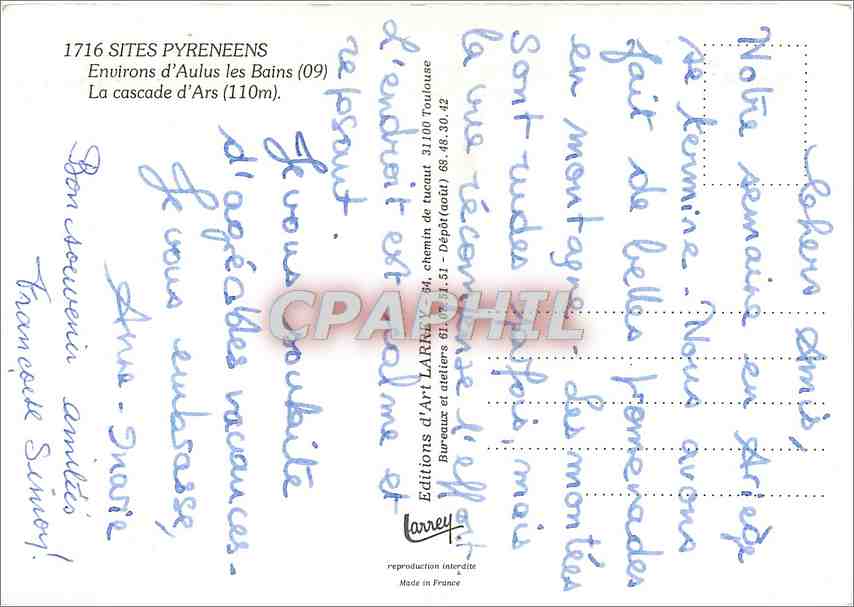 1716 SITES PYRENEENS
Environs d'Aulus les Bains (09)
La cascade d'Ars (110m).
Chers Amis,
Notre semaine en Ariège
se termine. Nous avons
fait de belles promenades
en montagne. Les montées
sont rudes parfois, mais
la vue récompense l'effort
L'endroit est calme et
reposant.
Je vous souhaite
d'agréables vacances.
Je vous embrasse,
Anne-Marie
Bon souvenir amitiés
Françoise Simoy!
Editions d'Art LARREY - 64, chemin de tucaut 31100 Toulouse
Bureaux et ateliers 61.07.51.51 - Dépôt (août) 68.48.30.42
CPAPHIL
Larrey
reproduction interdite
Made in France